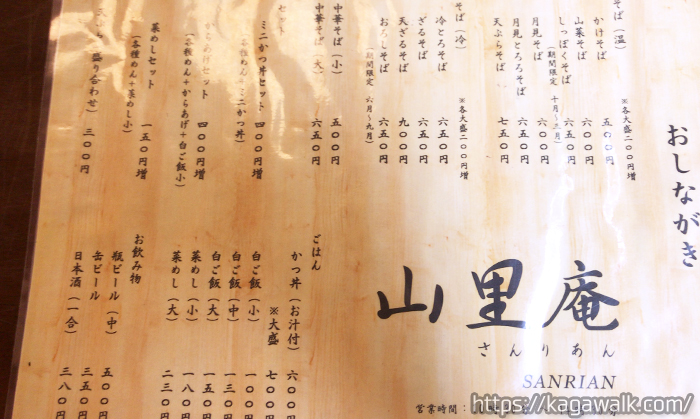 おしながき
そば（温）
※各大盛二〇〇円増
かけそば 五〇〇円
山菜そば 六五〇円
しっぽくそば 六五〇円
（期間限定 十月～三月）
月見そば 六〇〇円
月見とろろそば 六五〇円
天ぷらそば 七五〇円
そば（冷）
※各大盛二〇〇円増
冷とろそば 六五〇円
ざるそば 六五〇円
天ざるそば 九〇〇円
おろしそば 六〇〇円
（期間限定 六月～九月）
中華そば（小） 五〇〇円
中華そば（大） 六五〇円
セット
ミニかつ丼セット 四〇〇円増
（各種めん＋ミニかつ丼）
からあげセット 四〇〇円増
（各種めん＋からあげ＋白ご飯小）
菜めしセット 一五〇円増
（各種めん＋菜めし小）
（盛り合わせ） 三〇〇円
山里庵
さんりあん
SANRIAN
営業時間：
ごはん
かつ丼（お汁付） 六〇〇
※大盛 七〇〇
白ご飯（小） 一〇〇
白ご飯（中） 一三〇
白ご飯（大） 一五〇
菜めし（小） 一八〇
菜めし（大） 二三〇
お飲み物
瓶ビール（中） 五〇〇
缶ビール 三五〇
日本酒（一合） 三八〇
https://kagawalk.com/